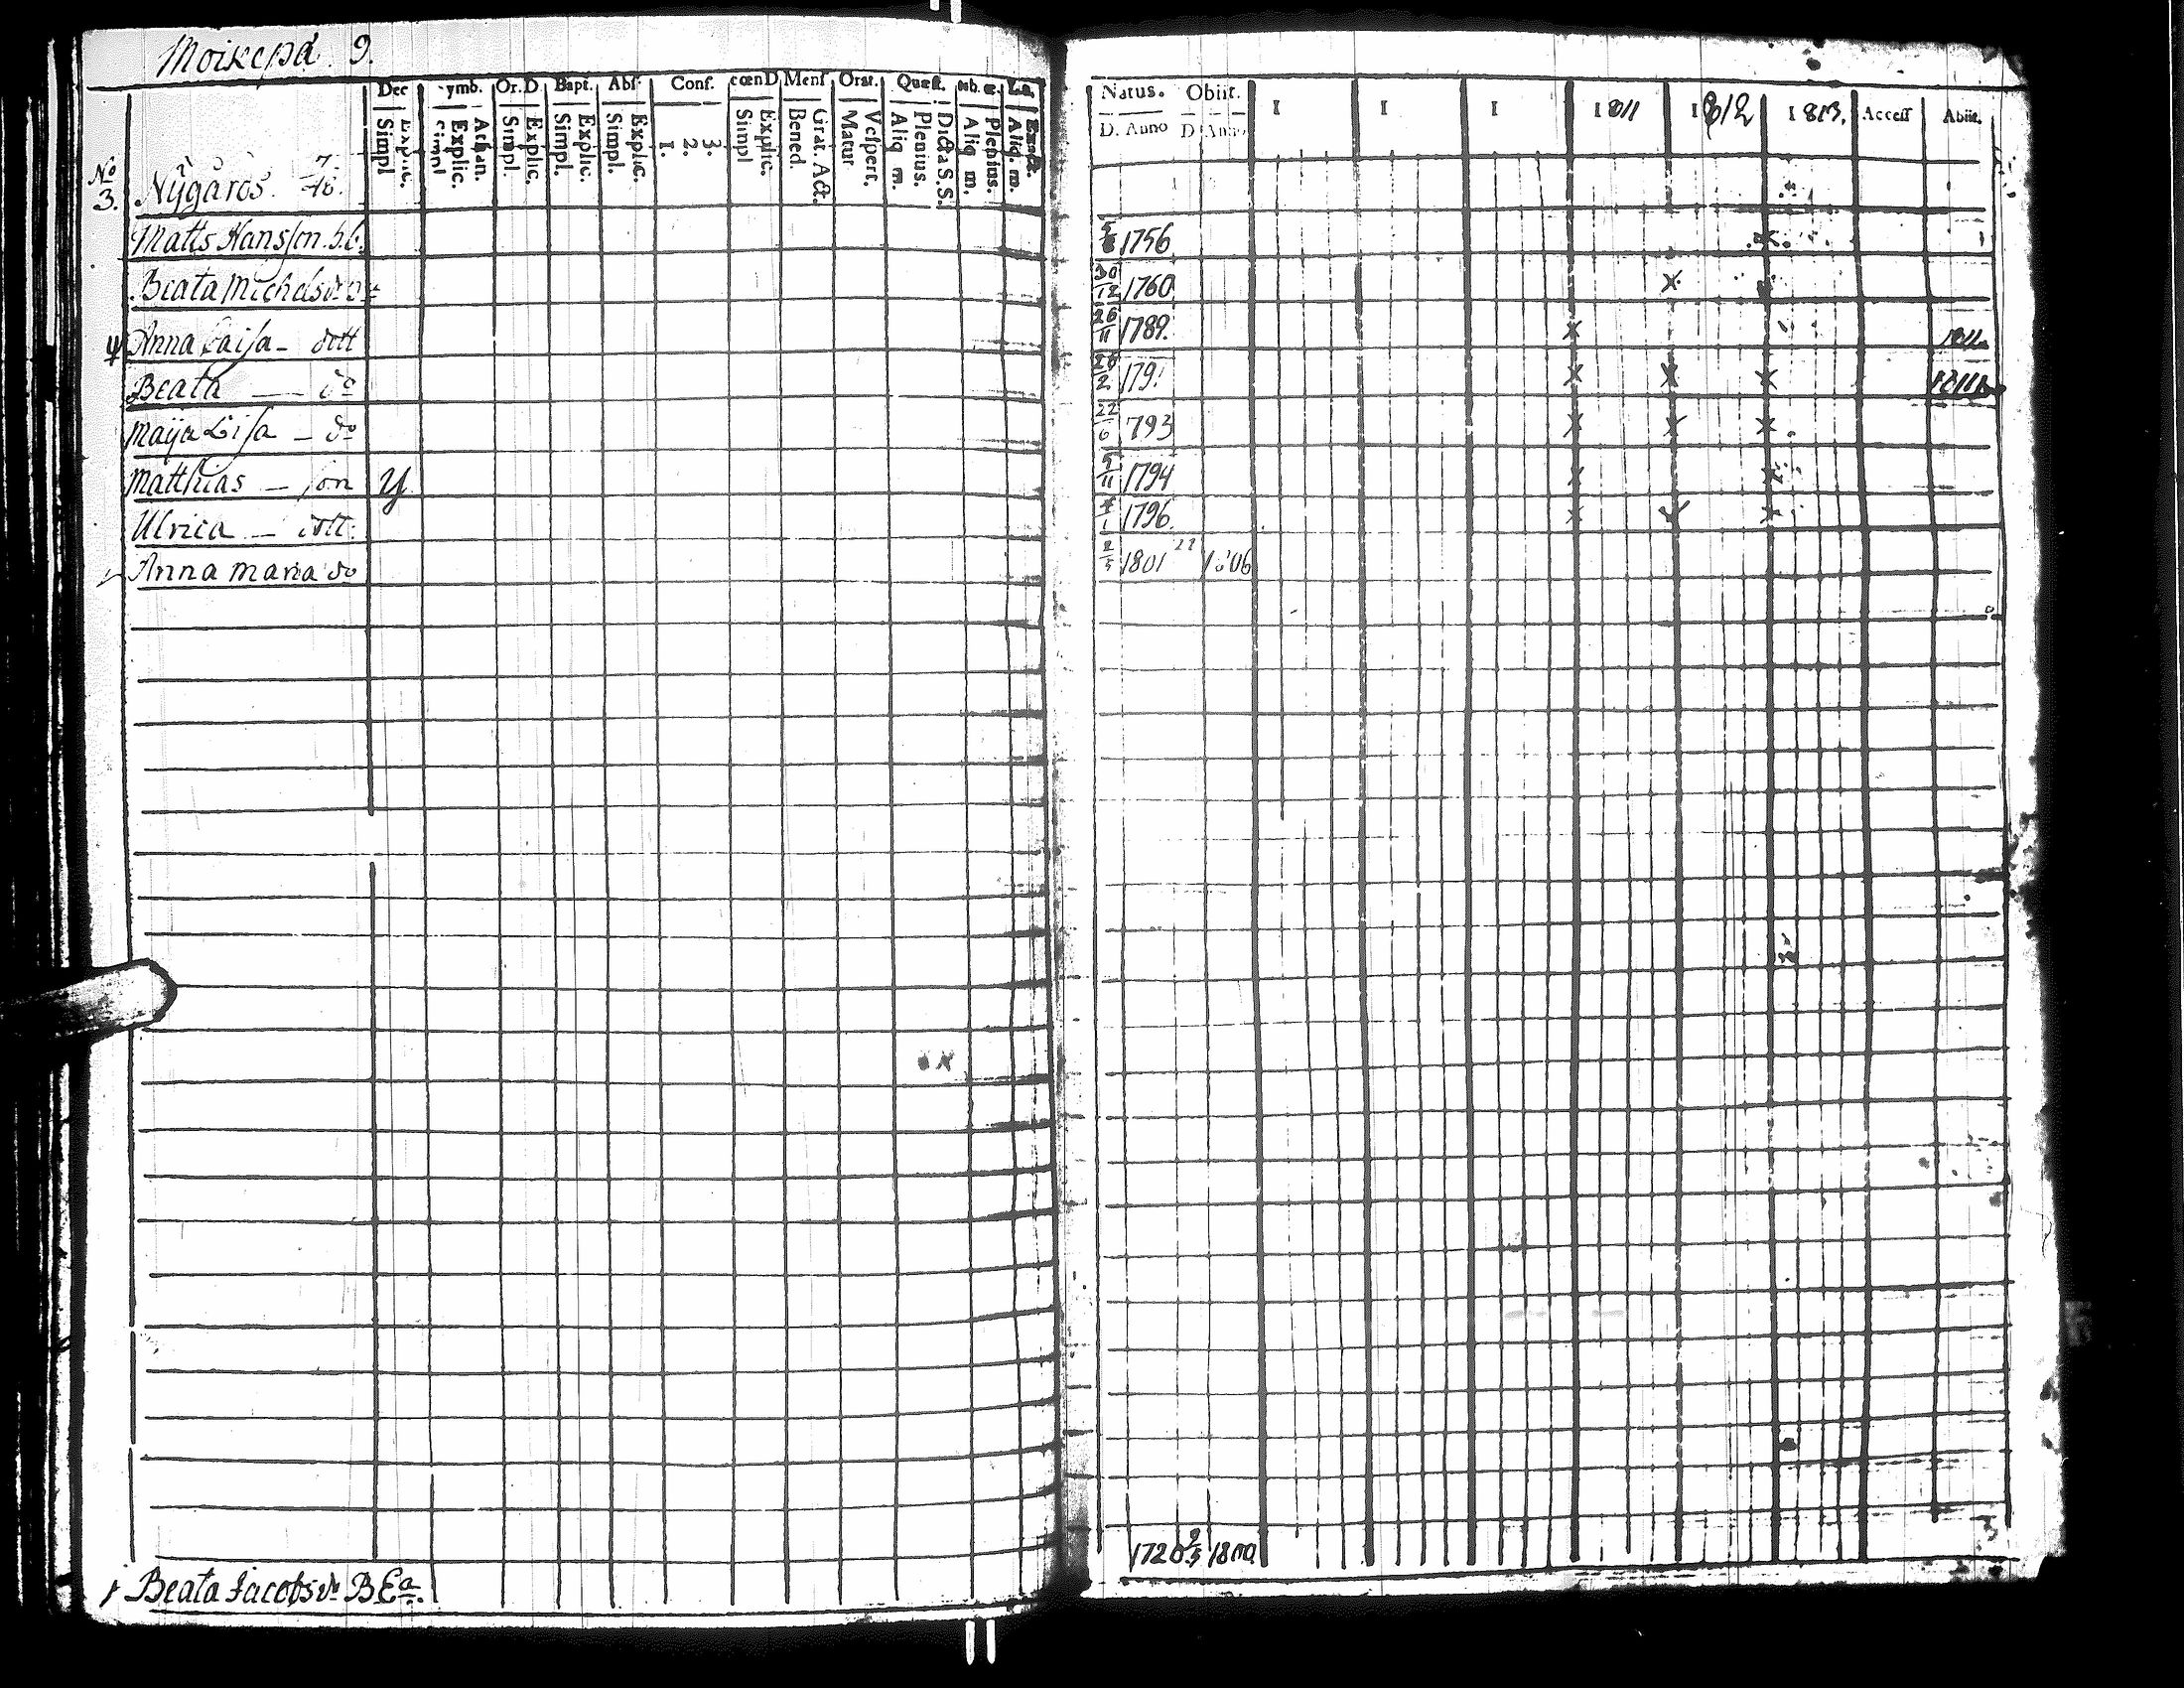 Moikepä. 9.
Dec ymb. Or.D. Bapt. Abſ Conf. cœnD Menſ Orat. Quæst. La.
Simpl Explic. Simpl Explic. Athan. Simpl. Explic. Simpl. Explic. Simpl. Explic. 1. 2. 3. Simpl Explic. Bened. Grat. Act. Matut Veſpert. Aliq m. Plenius. Dicta S.S. Aliq m. Plenius. Aliq. m. Exact.
Natus. Obiit. I I I 1811 1812 1813. Acceſſ Abiit.
D. Anno D Anno
No 3. Nÿgåros
Matts Hansſon 1756
Beata Michelsdr 30/12 1760
Anna Caiſa - dott 26/11 1789. 1811
Beata — do 179
Maija Liſa — do 22 793
Matthias — ſon 1794
Ulrica — dott: 4/1 1796
Anna Maria do 1801 1806
Beata Jacobsdr BEa. 1720 1800